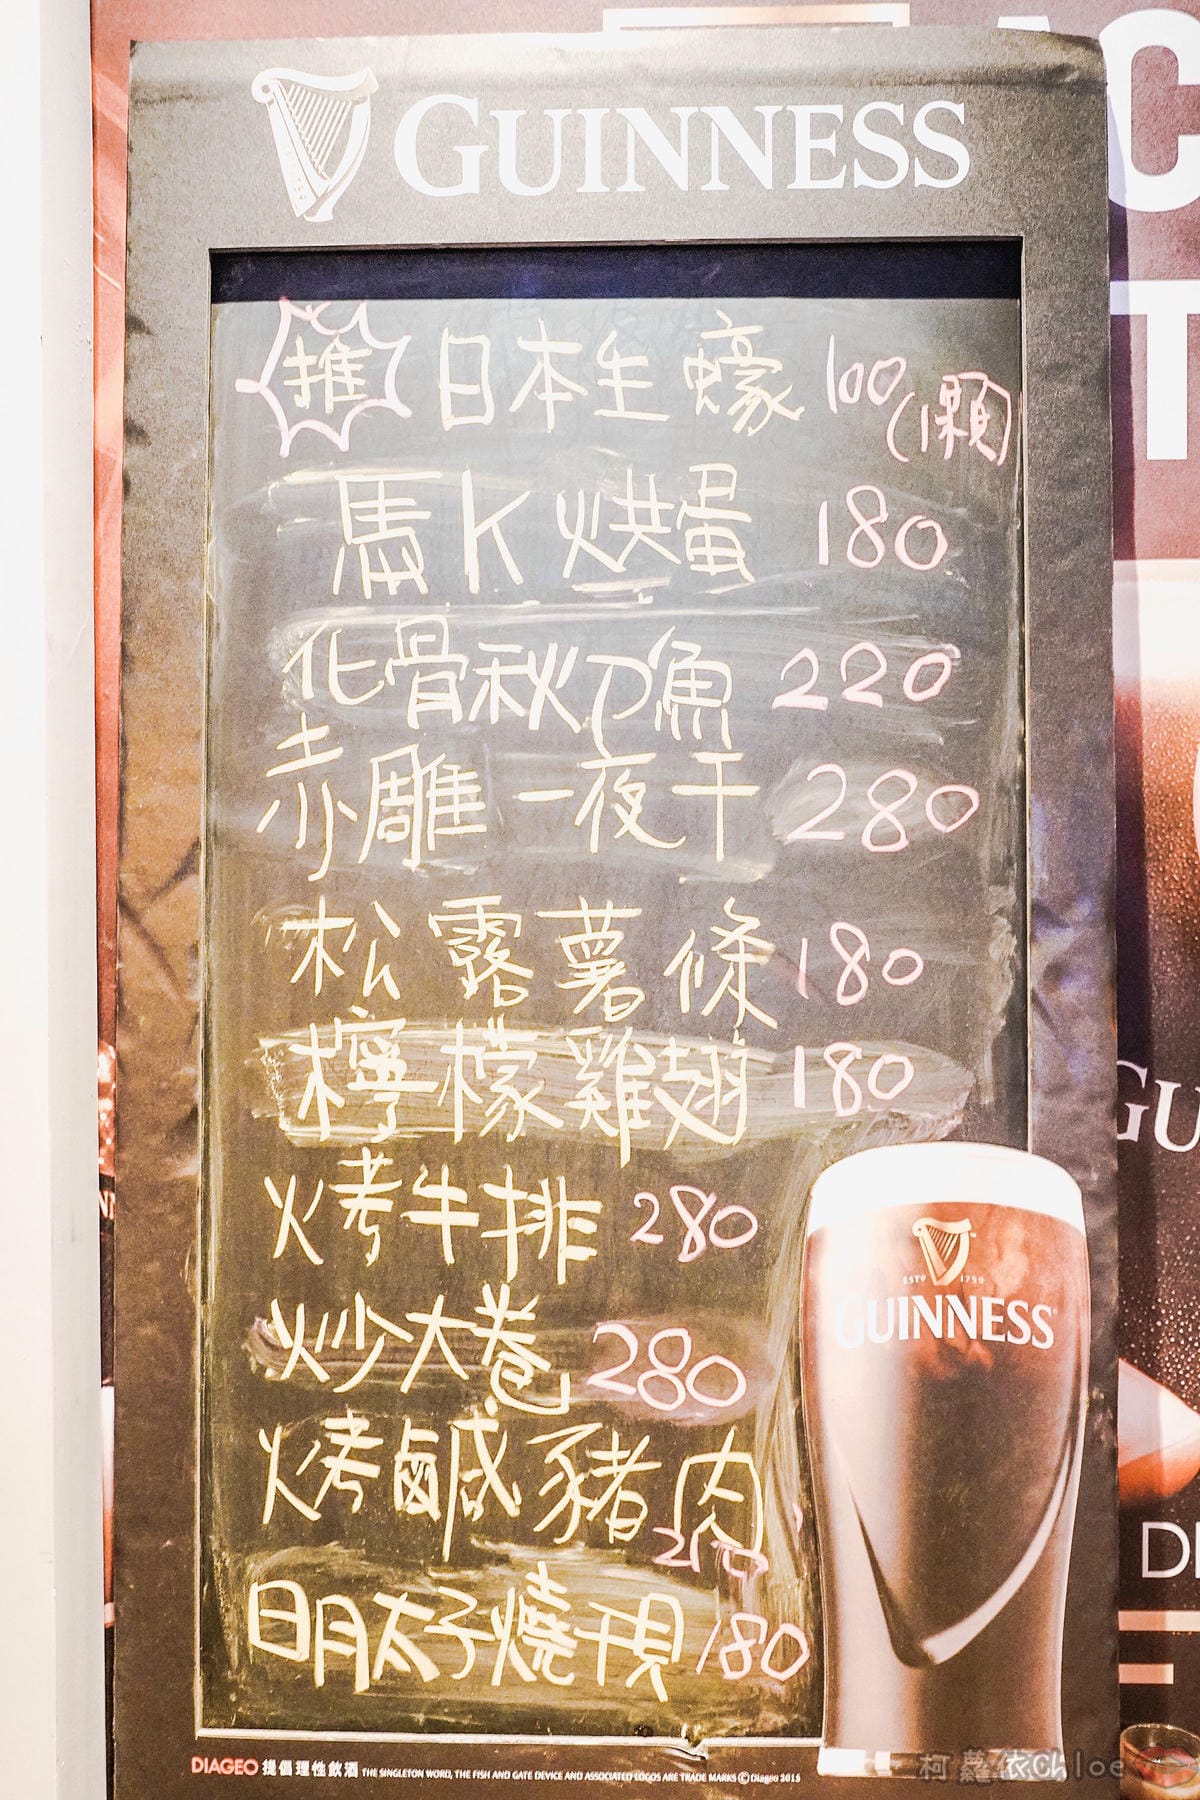 GUINNESS
推 日本生蠔 100(1顆)
馬K烘蛋 180
化骨秋刀魚 220
赤雕一夜干 280
松露薯條 180
檸檬雞翅 180
火烤牛排 280
炒大卷 280
火烤鹹豬肉
明太子燒干貝 180
ESTD 1759
GUINNESS
DIAGEO 提倡理性飲酒 THE SINGLETON WORD, THE FISH AND GATE DEVICE AND ASSOCIATED LOGOS ARE TRADE MARKS ©Diageo 2015
柯蘿依Chloe